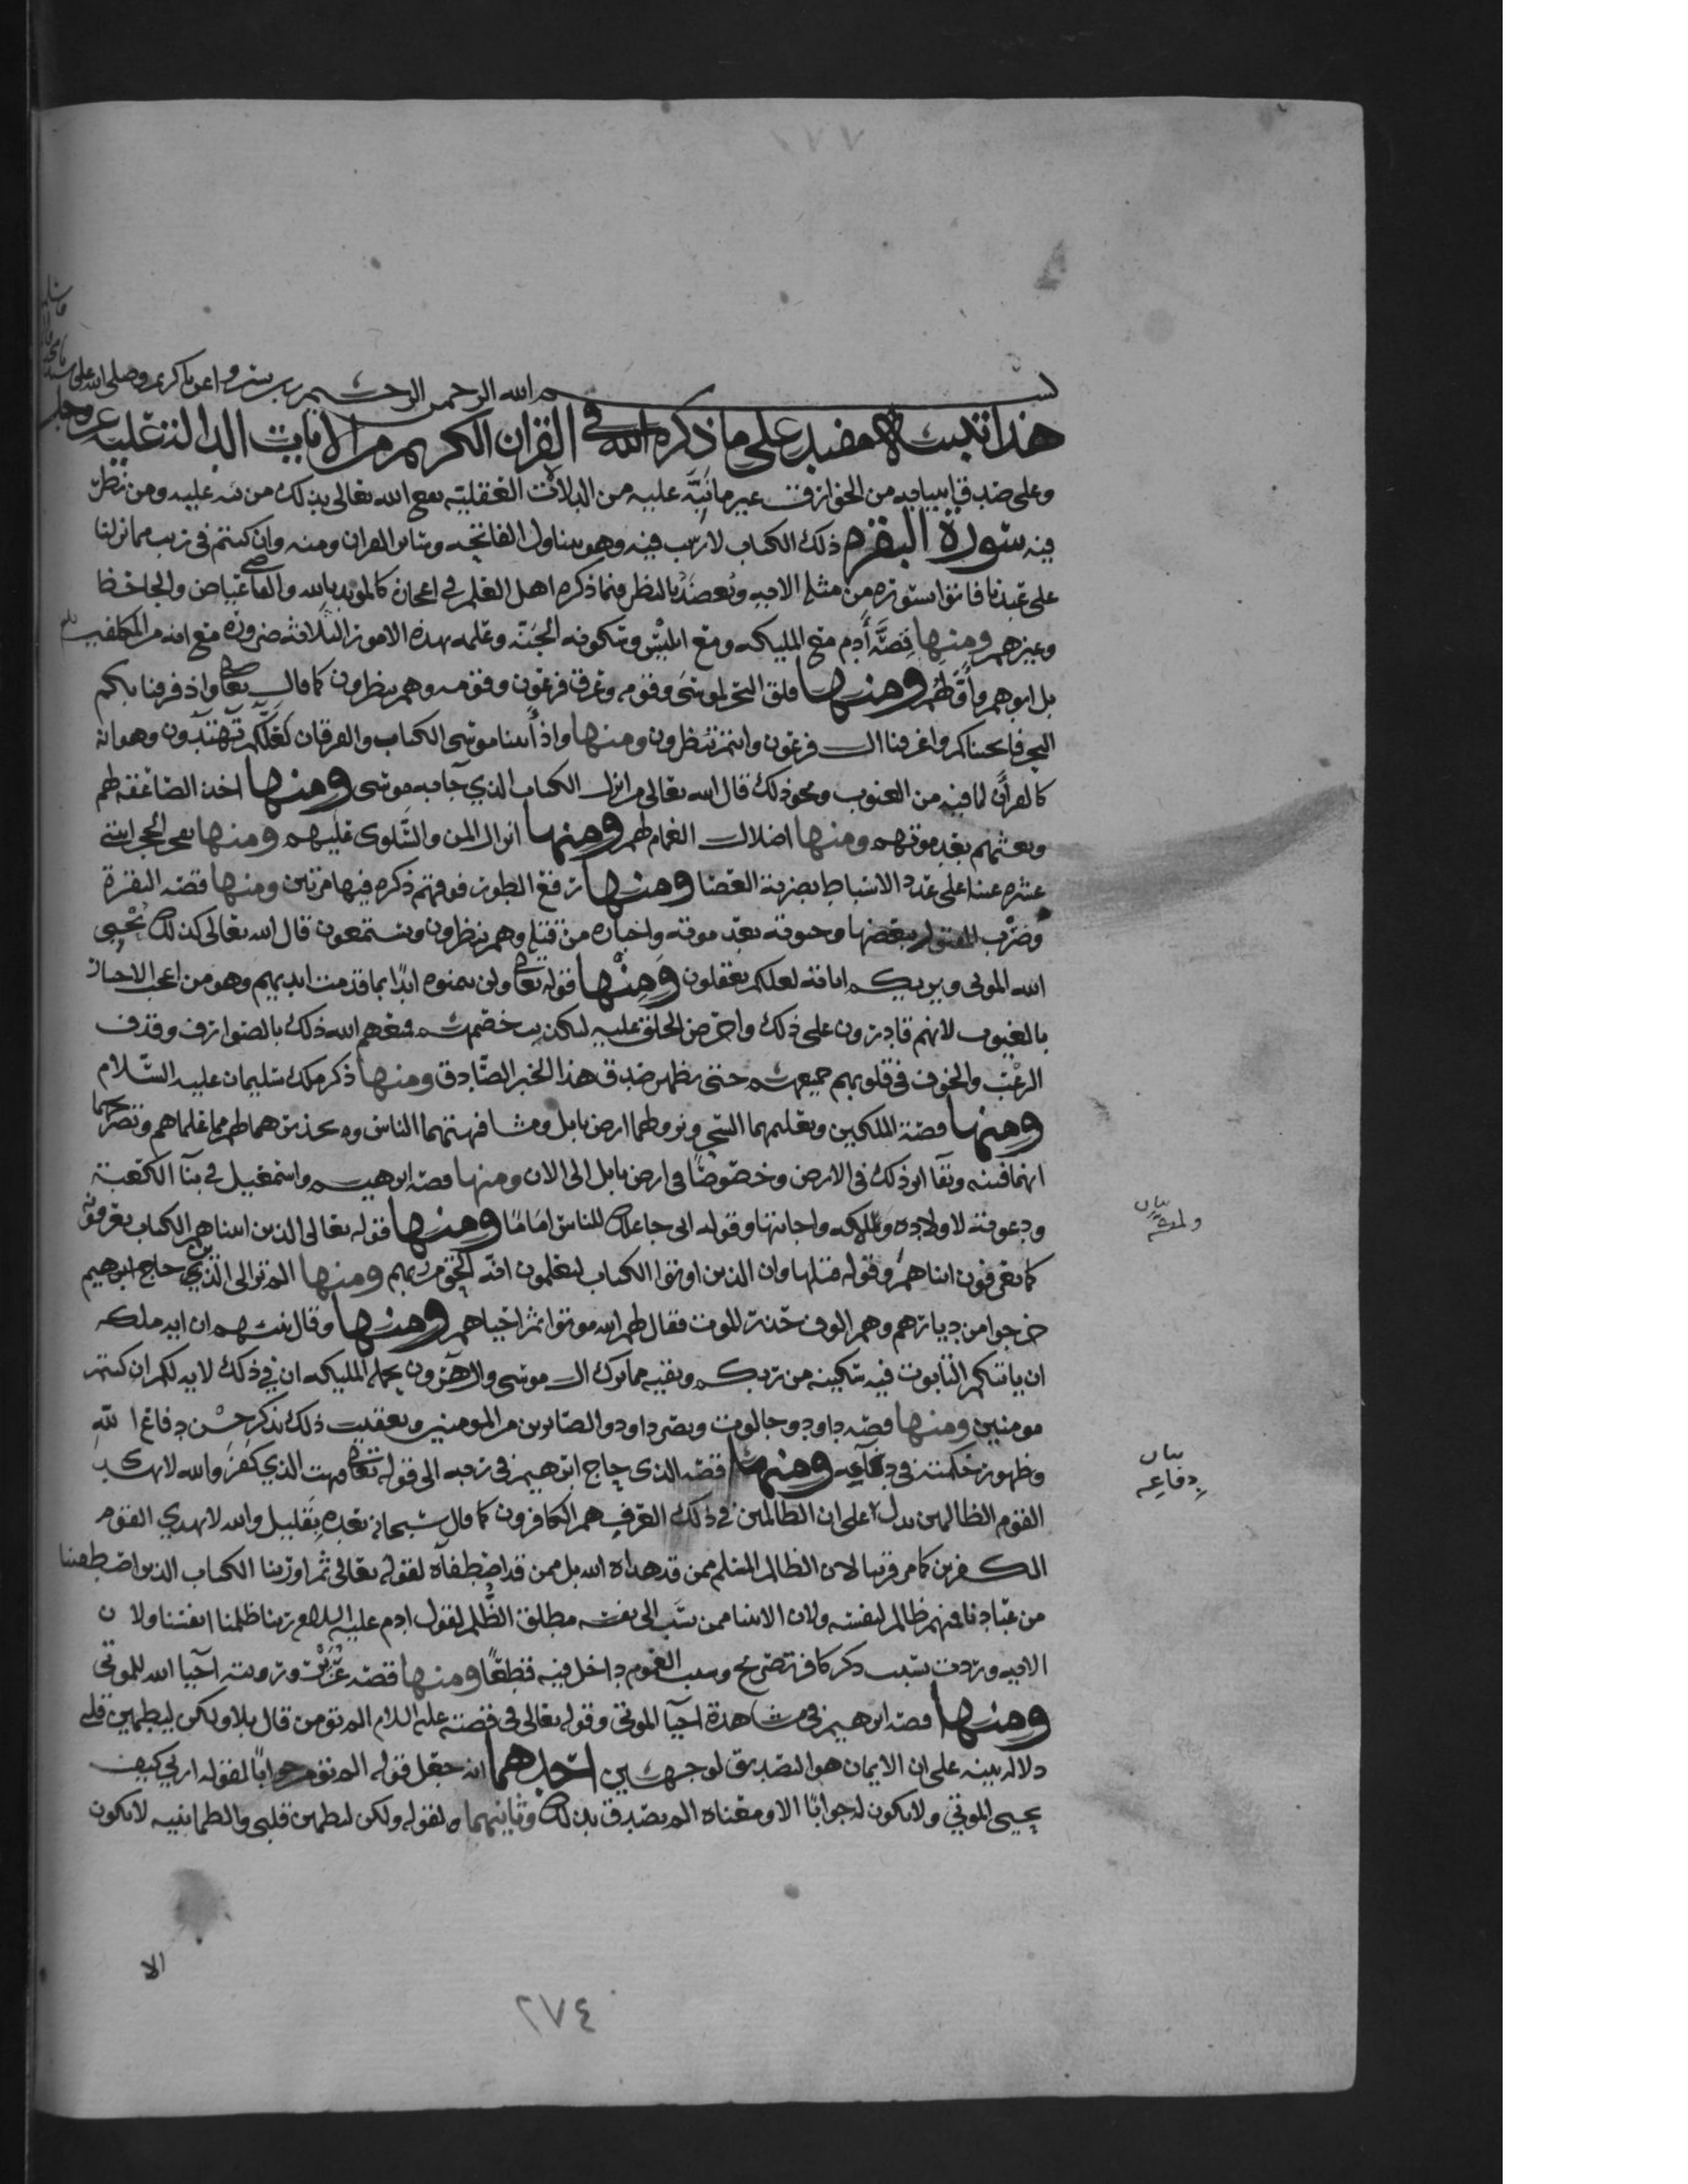 ١٧٧
بسم الله الرحمن الرحيم رب يسر واعن يا كريم وصلى الله على
هذا تنبيه مفيد على ما ذكره الله في القران الكريم من الايات الدالة عليه عز وجل
وعلى صدق انبيايه من الخوارق غير ما نبه عليه من الدلالات العقلية نفع الله تعالى بذلك من نبه عليه ومن نظر
فيه سورة البقرة ذلك الكتاب لا ريب فيه وهو يتناول الفاتحه وساير القران ومنه وان كنتم في ريب مما نزلنا
على عبدنا فاتوا بسورة من مثله الايه ويعضد بالنظر فيما ذكره اهل العلم في اعجازه كالمويد بالله والقاضي عياض والجاحظ
وغيرهم ومنها قصة أدم مع المليكه ومع ابليس وسكونه الجنة وعلمه بهذه الامور الثلاثة ضرورة مع انه من المكلفين
بل ابوهم وأولهم ومنها فلق البحر لموسى وقومه وغرق فرعون وقومه وهم ينظرون كما قال تعالى واذ فرقنا بكم
البحر فانجيناكم واغرقنا ال فرعون وانتم تنظرون ومنها واذ أتينا موسى الكتاب والفرقان لعلكم تهتدون وهو انه
كالقرأن لما فيه من الغيوب ونحو ذلك قال الله تعالى من انزل الكتاب الذي جا به موسى ومنها اخذ الصاعقة لهم
وبعثهم بعد موتهم ومنها اضلال الغمام لهم ومنها انزال المن والسلوى عليهم ومنها تفجر الحجر اثنتي
عشره عينا على عدد الاسباط بضربة العصا ومنها رفع الطور فوقهم ذكره فيها مرتين ومنها قصة البقرة
وضرب المقتول ببعضها وحيوته بعد موته واخباره من قتله وهم ينظرون ويستمعون قال الله تعالى كذلك يحيي
الله الموتى ويريكم اياته لعلكم تعقلون ومنها قوله تعالى ولن يتمنوه ابدًا بما قدمت ايديهم وهو من اعجب الاخبار
بالغيوب لانهم قادرون على ذلك واحرص الخلق عليه لتكذيب خصمهم فمنعهم الله ذلك بالصوارف وقذف
الرعب والخوف في قلوبهم جميعهم حتى يظهر صدق هذا الخبر الصادق ومنها ذكر ملك سليمان عليه السلام
ومنها قصة الملكين وتعليمهما السحر ونزولهما ارض بابل ومشافهتهما الناس وتحذيرهما لهم مما علماهم وتصريحهما
انهما فتنه وبقا اثر ذلك في الارض وخصوصًا في ارض بابل الى الان ومنها قصة ابرهيم واسمعيل في بنآ الكعبة
ودعوته لاولاده واجابتها وقوله اني جاعلك للناس امامًا ومنها قوله تعالى الذين اتيناهم الكتاب يعرفونه
كما يعرفون ابناهم وقوله قبلها وان الذين اوتوا الكتاب ليعلمون انه الحق من ربهم ومنها الم تر الى الذين
خرجوا من ديارهم وهم الوف حذر الموت فقال لهم الله موتوا ثم احياهم ومنها وقال نبيهم ان ايه ملكه
ان ياتيكم التابوت فيه سكينه من ربكم وبقيه مما ترك ال موسى وال هرون تحمله المليكه ان في ذلك لايه لكم ان كنتم
مومنين ومنها قصه داود وجالوت ونصر داود والصابرين من المومنين وتعقيب ذلك بذكر حسن دفاع الله
وظهور حكمته في دفاعه ومنها قصة الذي حاج ابرهيم في ربه الى قوله تعالى فبهت الذي كفر والله لا يهدي
القوم الظالمين يدل على ان الظالمين في ذلك العرف هم الكافرون كما قال سبحانه بعده بقليل والله لا يهدي القوم
الكفرين كما مر قريبا لان الظالم المسلم ممن قد هداه الله بل ممن قد اصطفاه لقوله تعالى ثم اورثنا الكتاب الذين اصطفينا
من عبادنا فمنهم ظالم لنفسه ولان الانبيا ممن نسب الى نفسه مطلق الظلم لقول ادم عليه السلام ربنا ظلمنا انفسنا ولان
الايه وردت بسبب ذكر كافر تصريح وسبب العموم داخل فيه قطعًا ومنها قصة عزير ورويته احيا الله للموتى
ومنها قصة ابرهيم في مشاهدة احيآ الموتى وقوله تعالى في قصته عليه السلام اولم تومن قال بلا ولكن ليطمين قلبي
دلاله بينه على ان الايمان هو التصديق لوجهين احدهما انه جعل قوله اولم تومن جوابًا لقوله ارني كيف
تحيي الموتى ولا يكون له جوابًا الا ومعناه الم تصدق بذلك وثانيهما لقوله ولكن ليطمين قلبي والطمانينه لا يكون
بيان
بيان
دفاعه
الا
٢٧٤